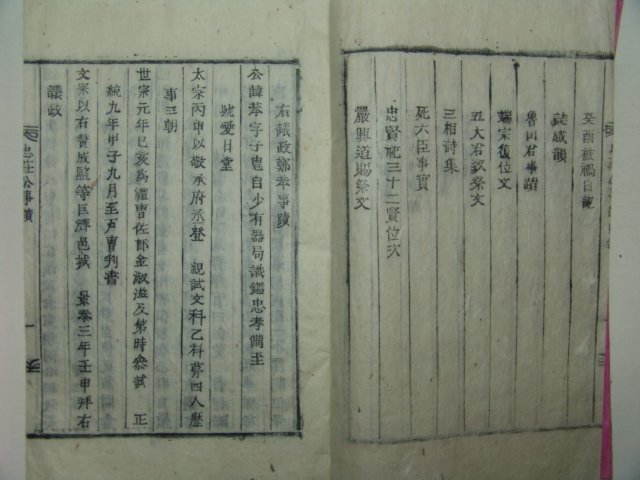 癸酉被禍日記
誌感韻
魯山君事蹟
端宗復位文
五大君致祭文
三相詩集
死六臣事實
忠賢祀三十二賢位次
嚴興道賜祭文
右議政鄭苯事蹟
公諱苯字子㞳自少有器局識鑑忠孝備至
號愛日堂
太宗丙申以敬承府丞登 親試文科乙科第四人歷
事三朝
世宗元年己亥爲禮曹佐郎金淑滋及第時參試 正
統九年甲子九月至戶曹判書
文宗以右贊成監等巨濟邑城 景泰三年壬申拜右
議政
忠莊公事蹟 一